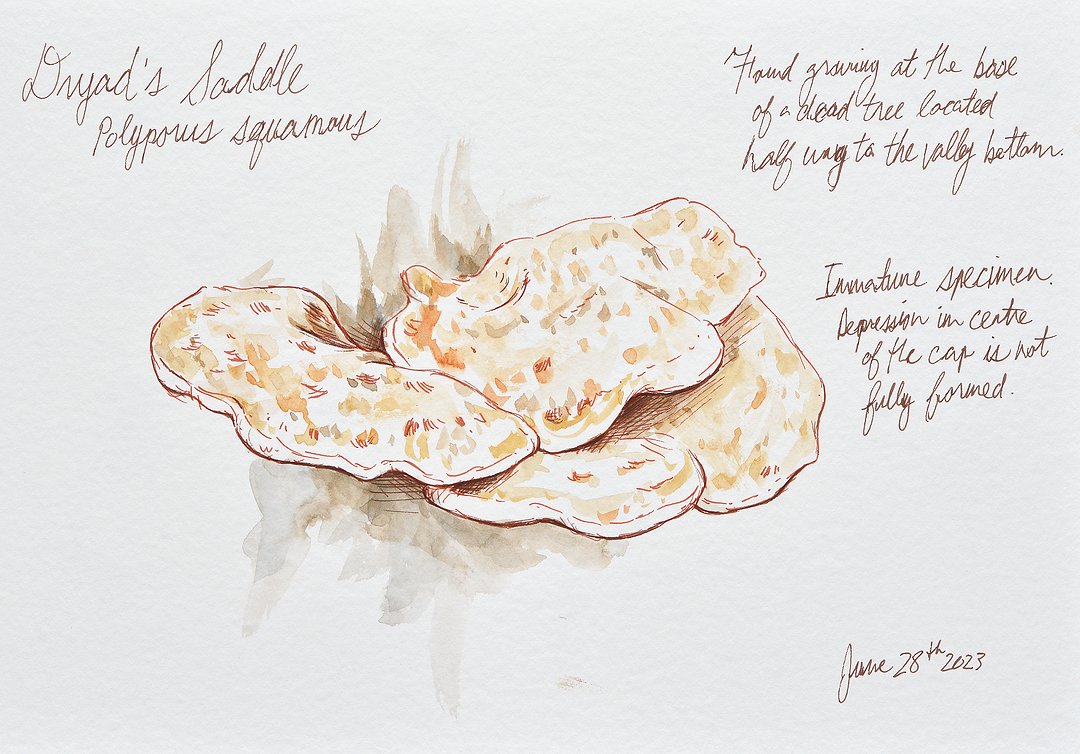 Dryad's Saddle
Polyporus squamous
Found growing at the base
of a dead tree located
half way to the valley bottom.
Immature specimen.
Depression in centre
of the cap is not
fully formed.
June 28th 2023